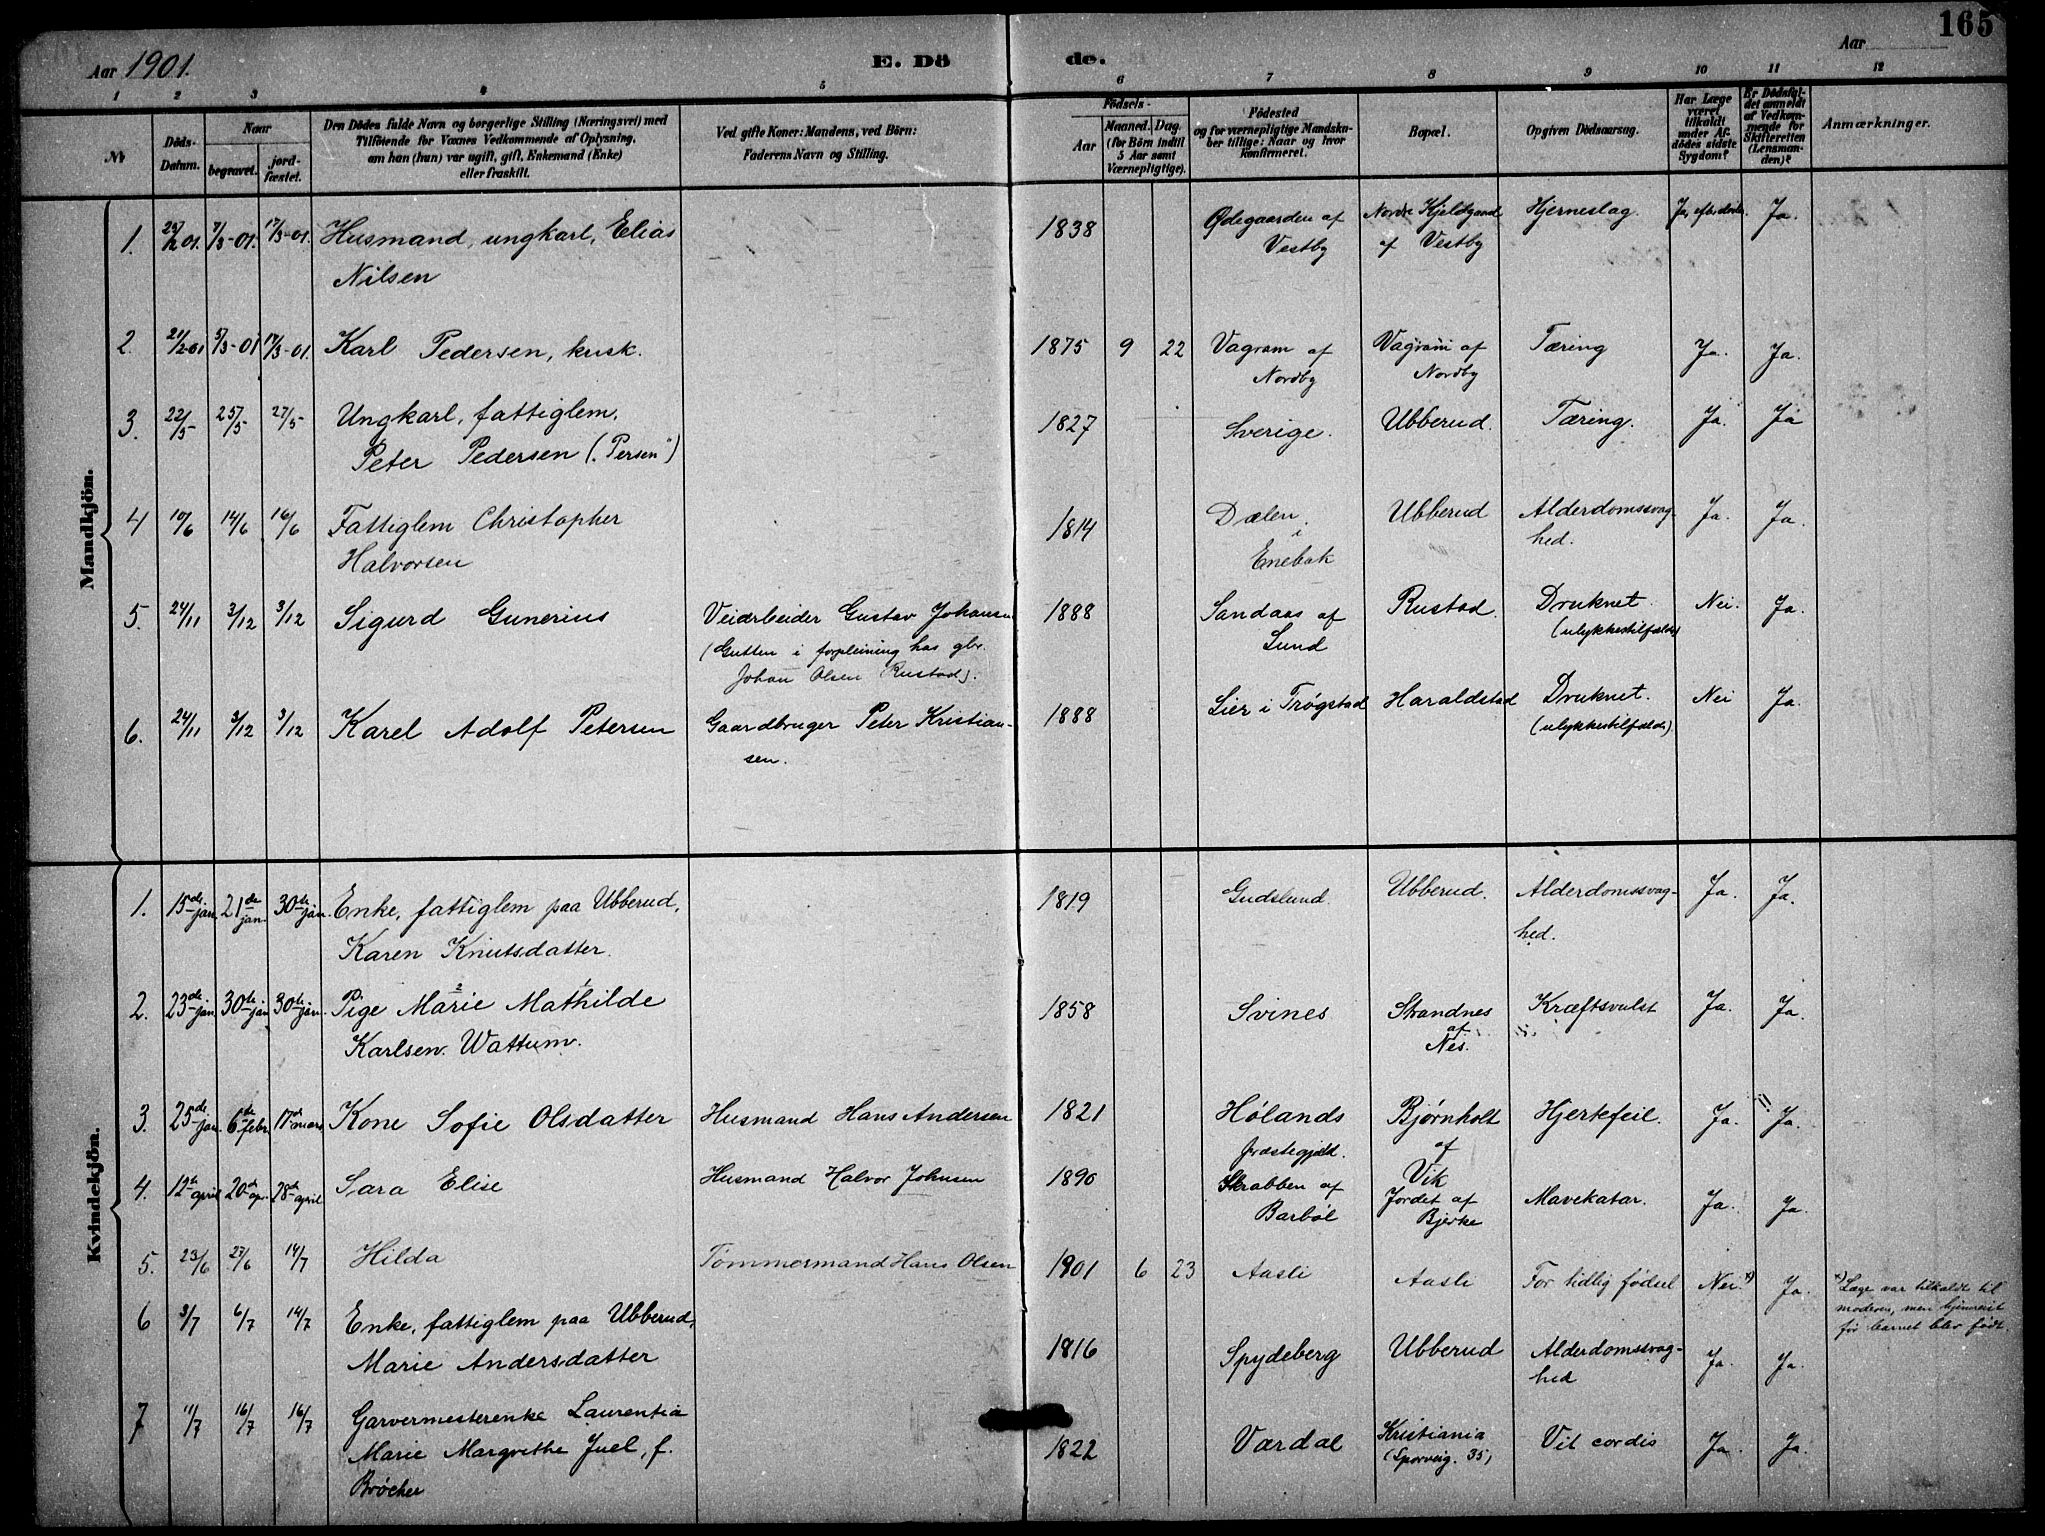 165
Aar 1901.
E. Dö de.
Aar
1 2 3 4 5 6 7 8 9 10 11 12
№
Döds-Datum.
Naar
begravet.
jord-fæstet.
Den Dödes fulde Navn og borgerlige Stilling (Næringsvei) med
Tilföiende for Voxnes Vedkommende af Oplysning,
om han (hun) var ugift, gift, Enkemand (Enke)
eller fraskilt.
Ved gifte Koner: Mandens, ved Börn:
Faderens Navn og Stilling.
Födsels-
Aar
Maaned. Dag.
(for Börn indtil
5 Aar samt
Værnepligtige).
Födested
og for værnepligtige Mandska-
ber tillige: Naar og hvor
konfirmeret.
Bopæl.
Opgiven Dödsaarsag.
Har Læge
været
tilkaldt
under Af-
dödes sidste
Sygdom?
Er Dödsfal-
det anmeldt
af Vedkom-
mende for
Skifteretten
(Lensman-
den)?
Anmærkninger.
Mandkjön.
1. 7/3-01. 17/3-01. Husmand, ungkarl, Elias 1838 Ødegaarden af Nordre af Hjerneslag. Ja, Ja.
Nilsen Vestby Vestby
2. 21/2-01 5/3-01 17/3-01. Karl Pedersen, kusk. 1875 9 22 Vagram af Vagram af Tæring Ja. Ja.
Nordby Nordby
3. 22/5 25/5 27/5 Ungkarl, fattiglem, 1827 Sverige. Ubberud. Tæring. Ja. Ja
Peter Pedersen („Persen")
4 10/6 14/6 16/6 Fattiglem Christopher 1814 Dælen i Ubberud Alderdomssvag- Ja. Ja.
Halvorsen Enebak hed.
5. 24/11 3/12 3/12 Sigurd Gunerius Veiarbeider Gustav Johansen 1888 Sandaas af Rustad. Druknet. Nei. Ja.
(Gutten i forpleining hos gbr. Lund (ulykkestilfælde)
Johan Olsen Rustad).
6. 24/11 3/12 3/12 Karel Adolf Petersen Gaardbruger Peter Kristian- 1888 Lier i Trøgstad Haraldstad Druknet. Nei Ja.
sen. (ulykkestilfælde)
Kvindekjön.
1. 15de jan. 21de jan. 30te jan. Enke, fattiglem paa Ubberud, 1819 Gudslund. Ubberud. Alderdomssvag- Ja. Ja.
Karen Knutsdatter. hed.
2. 23de jan. 30te jan. 30te jan. Pige Marie Mathilde 1858 Svines Strandnes Kræftsvulst Ja. Ja.
Karlsen Wattum. af Nes.
3. 25de jan. 6de febr. 17de mars Kone Sofie Olsdatter Husmand Hans Andersen 1821 Hølands Bjørnholt Hjertefeil. Ja. Ja.
præstegjæld. af Vik
4. 12te april 20de apr. 28de april Sara Elise Husmand Halvor Johnsen 1890 Skrabben af Jordet af Mavekatar. Ja. Ja.
Barbøl Bjerke
5. 23/6 27/6 14/7 Hilda Tømmermand Hans Olsen 1901 6 23 Aasli Aasli For tidlig fødsel Nei.*) Ja. *) Læge var tilkaldt til
moderen, men
før barnet blev født.
6 3/7 6/7 14/7 Enke, fattiglem paa Ubberud, 1816 Spydeberg Ubberud Alderdomssvag- Ja. Ja.
Marie Andersdatter hed
7 11/7 16/7 16/7 Garvermesterenke Laurentia 1822 Værdal Kristiania Vit cordis Ja. Ja.
Marie Margrethe Juel, f. (Sporveig. 35)
Bröcher